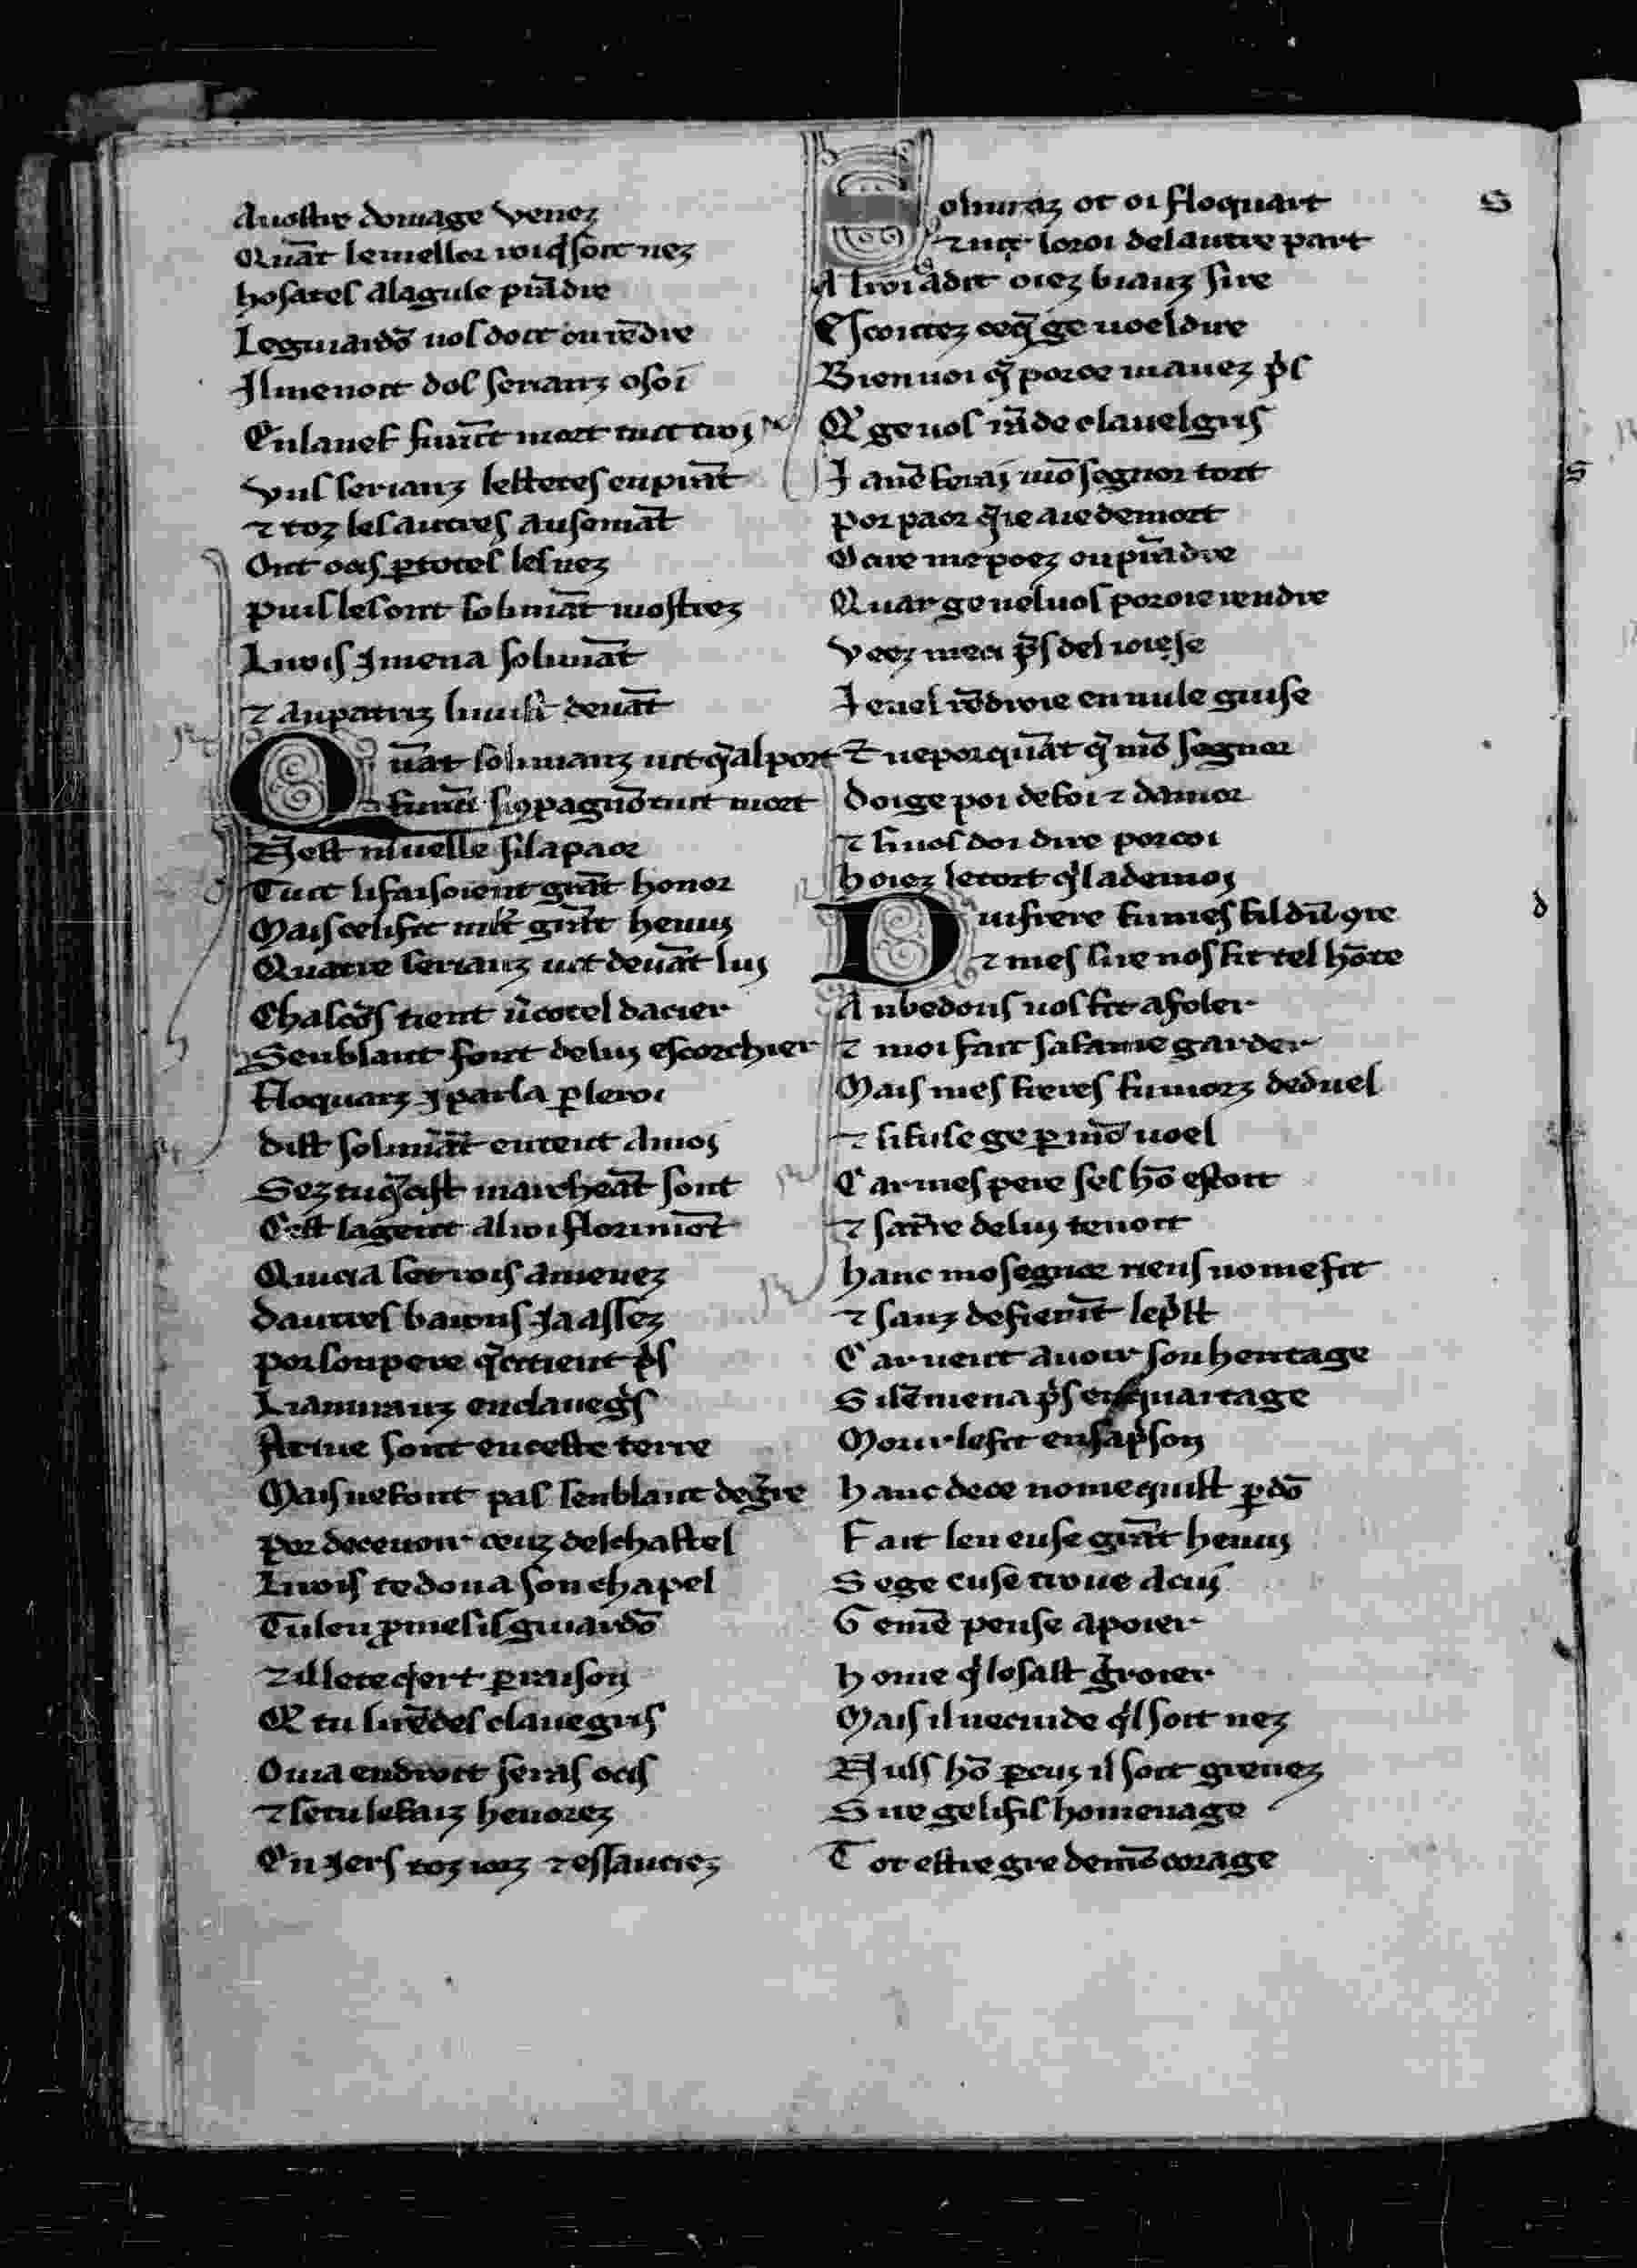 A uostre domage venez
Quāt lemellor roi q̃ soit nez
hosates alagule prādre
Le guiardō uos doit on rēdre
Il menoit dos serianz o soi
En la nef furēt mort tuit troi
Vns serianz les testes en prīt
⁊ toz les autres ausemāt
Ont ocis ꝑ totes les nez
Puis les ont solimāt mostrez
Li rois J mena solimāt
⁊ au patriz li mist deuāt
Quāt solimanz uit q̃ al port
furēt si ꝯpagnō tuit mort
N est mſuelle sil a paor
Tuit li faisoient grāt honor
Mais ce li fit mlt̄ grāt henui
Quatre serianz uit deuāt lui
Chascūs tient .ı. cotel dacier
Senblant font de lui escorchier
Floquarz J parla ꝑ le roi
Dist solimāt entent a moi
Sez tu q̃ cist marcheāt sont
Cest la gent al roi florimōt
Qui ci a set rois amenez
Dautres barons J a assez
Por son pere q̃ ci tient p̄s
Li amiranz en claueg̃s
Ariue sont en ceste terre
Mais ne font pas senblant deg̃re
Por deceuoir ceuz del chastel
Li rois te dona son chapel
Tu len ꝓmesis guiardō
⁊ il le te q̃ert ꝑ raison
Q̃ tu li rēdes claue gris
O uia endroit seras ocis
⁊ se tu le faiz henorez
En J ers toz iorz ⁊ essauciez
Solimāz ot oi floquart
⁊ uit lo roi de lautre part
Al roi a dit oiez bianz sire
Escoutez ce q̃ ge uoel dire
Bien uoi q̃ por ce mauez p̄s
Q̃ ge uos rāde clauel gris
Ja nē ferai mō segnor tort
Por paor q̃ ie aie de mort
Ocire me poez ou prādre
Quar ge nel uos poroie rendre
Veez me ci p̄s del roi ese
Je nel rēdroie en nule guise
⁊ ne por quāt q̃ mō segnor
Doi ge poi de foi ⁊ damor
⁊ si uos doi dire por coi
hoiez le tort q̃l a de moi
Dui frere fumes fil dū ꝯte
⁊ mes sire nos fit tel hōte
Anbedous nos fit afoler
⁊ moi fait sa fame garder
Mais mes freres fu morz de duel
⁊ si fuse ge ꝑ mō uoel
Car mes pere ses hō estoit
⁊ sa t̃re de lui tenoit
hanc mo segnor riens no mefit
⁊ sanz defiemēt le p̄st
Car ueut auoir son heritage
Si lē mena p̄s en quartage
Morir le fit en sa p̄son
hanc de ce no me quist ꝑdō
Fait len euse grāt henui
Se ge cuse troue a cui
G emē pense a poier
home q̃ los ast g̃roier
Mais il ne cuide q̃l soit nez
Nuls hō ꝑ cui il soit greuez
Sue ge li fis homenage
Tot estre gre de mō corage
S
S
d